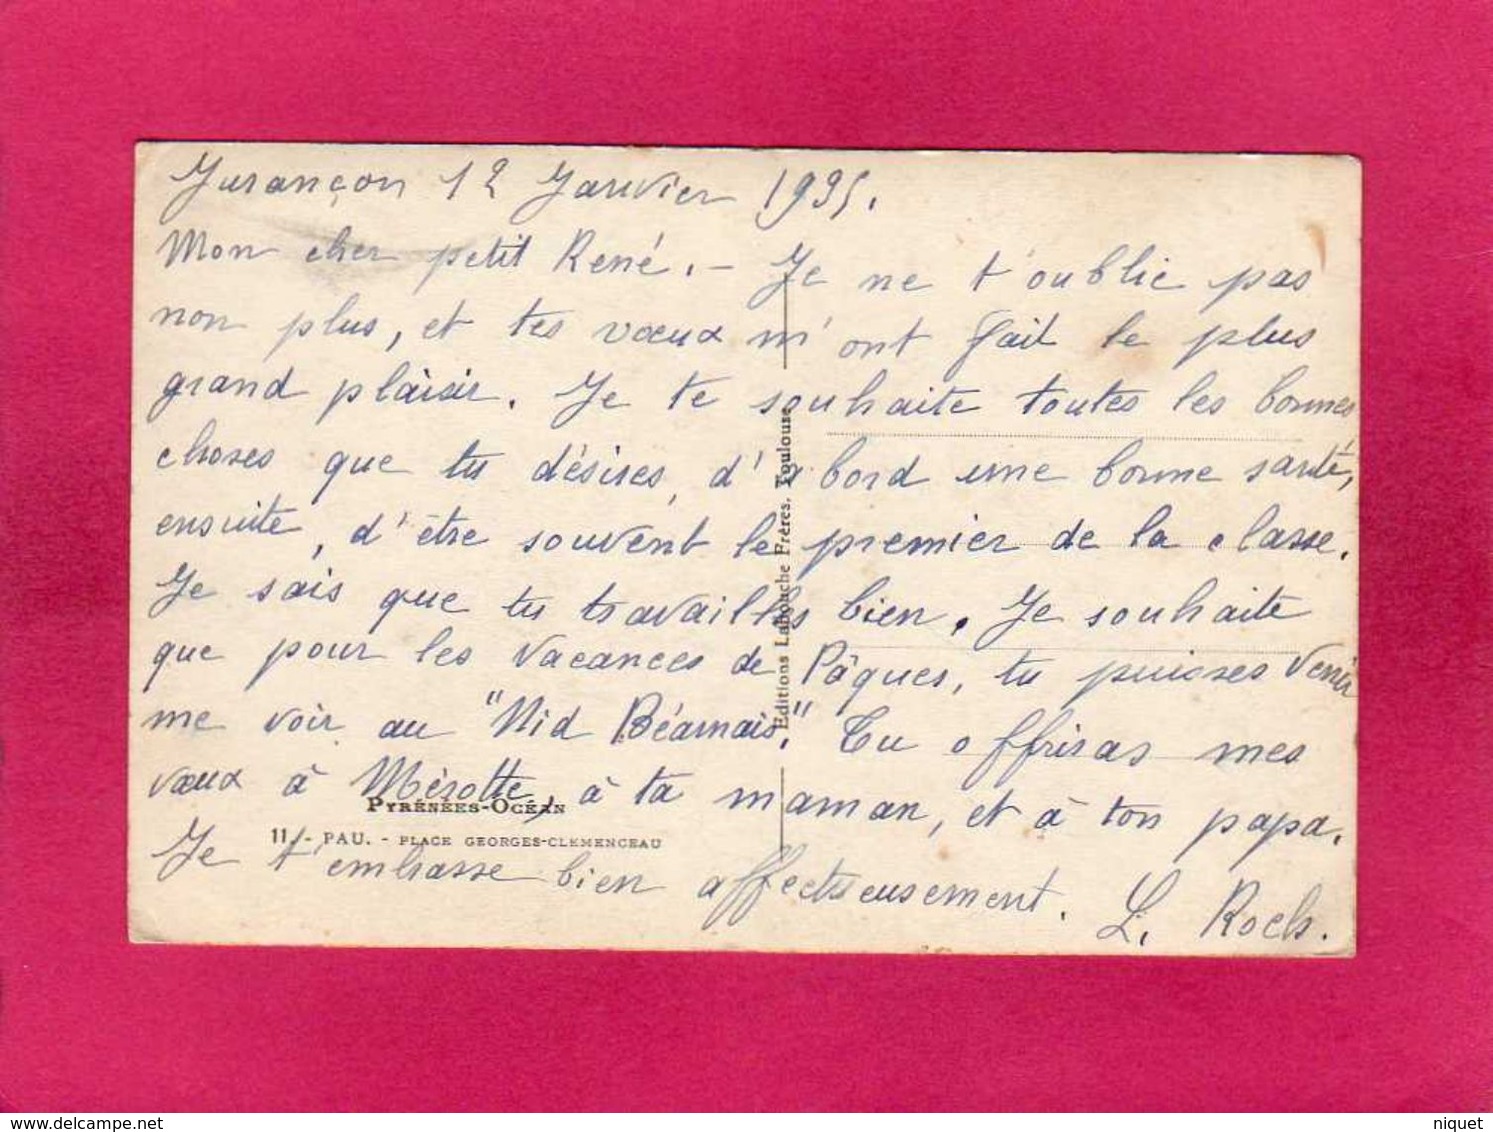 Jurançon 12 Janvier 1935.
Mon cher petit René. - Je ne t'oublie pas
non plus, et tes vœux m'ont fait le plus
grand plaisir. Je te souhaite toutes les bonnes
choses que tu désires, d'abord une bonne santé,
ensuite, d'être souvent le premier de la classe.
Je sais que tu travailles bien. Je souhaite
que pour les vacances de Pâques, tu puisses venir
me voir au "Nid Béarnais." Tu offriras mes
vœux à Mérotte, à ta maman, et à ton papa.
Je t'embrasse bien affectueusement. L. Roch.
PYRÉNÉES-OCÉAN
11 - PAU. - PLACE GEORGES-CLEMENCEAU
Editions Labouche Frères, Toulouse
delcampe.net
niquet